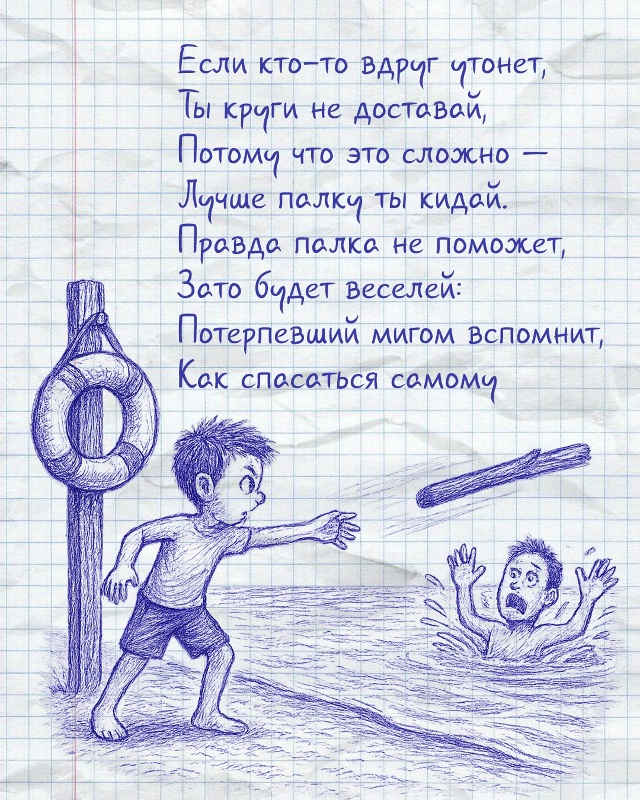 Если кто-то вдруг утонет,
Ты круги не доставай,
Потому что это сложно —
Лучше палку ты кидай.
Правда палка не поможет,
Зато будет веселей:
Потерпевший мигом вспомнит,
Как спасаться самому